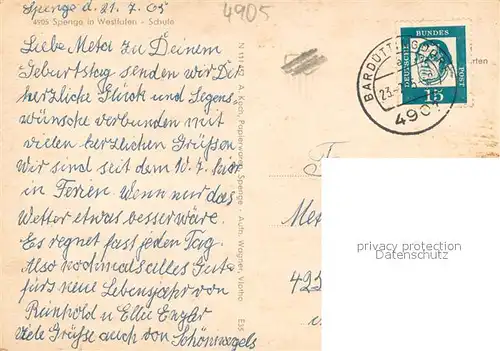 Spenge d. 21.7.65
4905
4905 Spenge in Westfalen - Schule
Liebe Meta! Zu Deinem
Geburtstag senden wir Dir
herzliche Glück und Segens
wünsche verbunden mit
vielen herzlichen Grüßen
Wir sind seit dem 10.7. hier
in Ferien. Wenn nur das
Wetter etwas besser wäre.
Es regnet fast jeden Tag.
Also nochmals alles Gute
fürs neue Lebensjahr von
Reinhold u Elli Enzler
Viele Grüße auch von Schönwegels
A. Koch, Papierwaren, Spenge - Aufn. Wagner, Vlotho
DEUTSCHE BUNDES POST
15
BARDÜTTINGDORF
23.
490
Me
425
privacy protection
Datenschutz